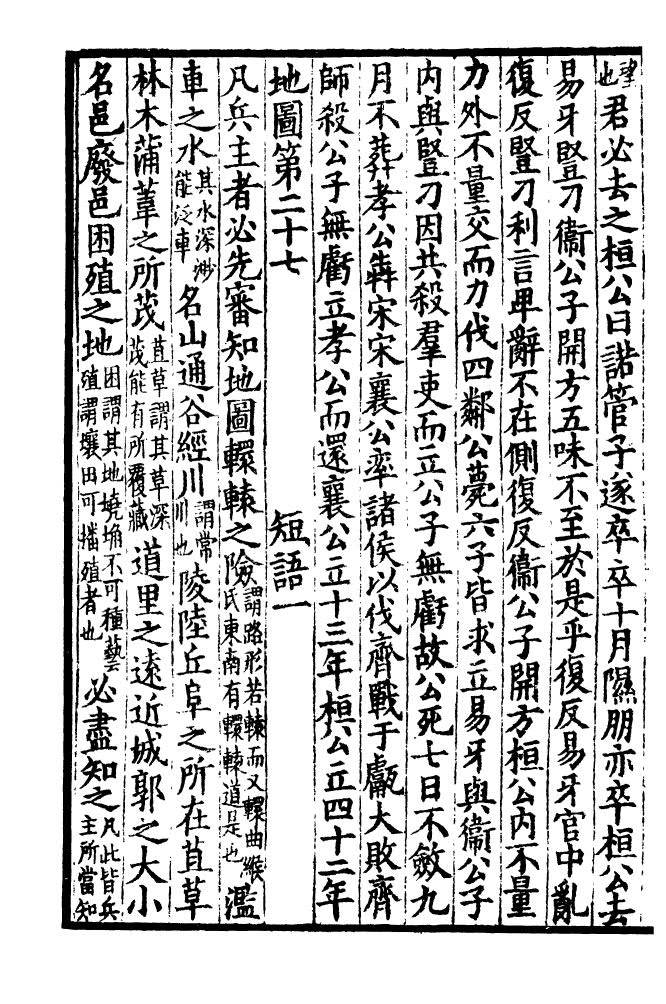 望也君必去之桓公曰諾管子遂卒卒十月隰朋亦卒桓公去
易牙豎刀衞公子開方五味不至於是乎復反易牙宫中亂
復反豎刀利言卑辭不在側復反衞公子開方桓公内不量
力外不量交而力伐四鄰公薨六子皆求立易牙與衞公子
内與豎刀因共殺羣吏而立公子無虧故公死七日不斂九
月不葬孝公犇宋宋襄公率諸侯以伐齊戰于甗大敗齊
師殺公子無虧立孝公而還襄公立十三年桓公立四十二年
地圖第二十七 短語一
凡兵主者必先審知地圖轘轅之險謂路形若轅而又轘曲緱氏東南有轘轅道是也濫
車之水其水深渺能泛車名山通谷經川謂常川也陵陸丘阜之所在苴草
林木蒲葦之所茂苴草謂其草深茂能有所覆藏道里之遠近城郭之大小
名邑廢邑困殖之地困謂其地墝埆不可種藝殖謂壤田可播殖者也必盡知之凡此皆兵主所當知